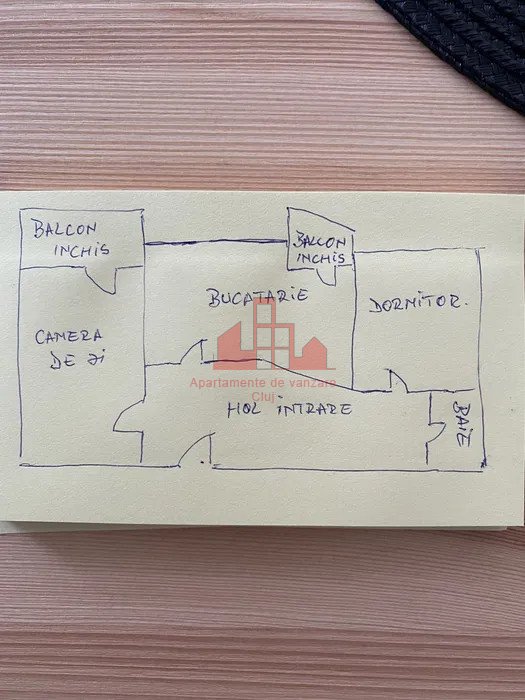 BALCON
INCHIS
BALCON
INCHIS
BUCATARIE
DORMITOR.
CAMERA
DE ZI
Apartamente de vanzare
Cluj
HOL INTRARE
BAIE